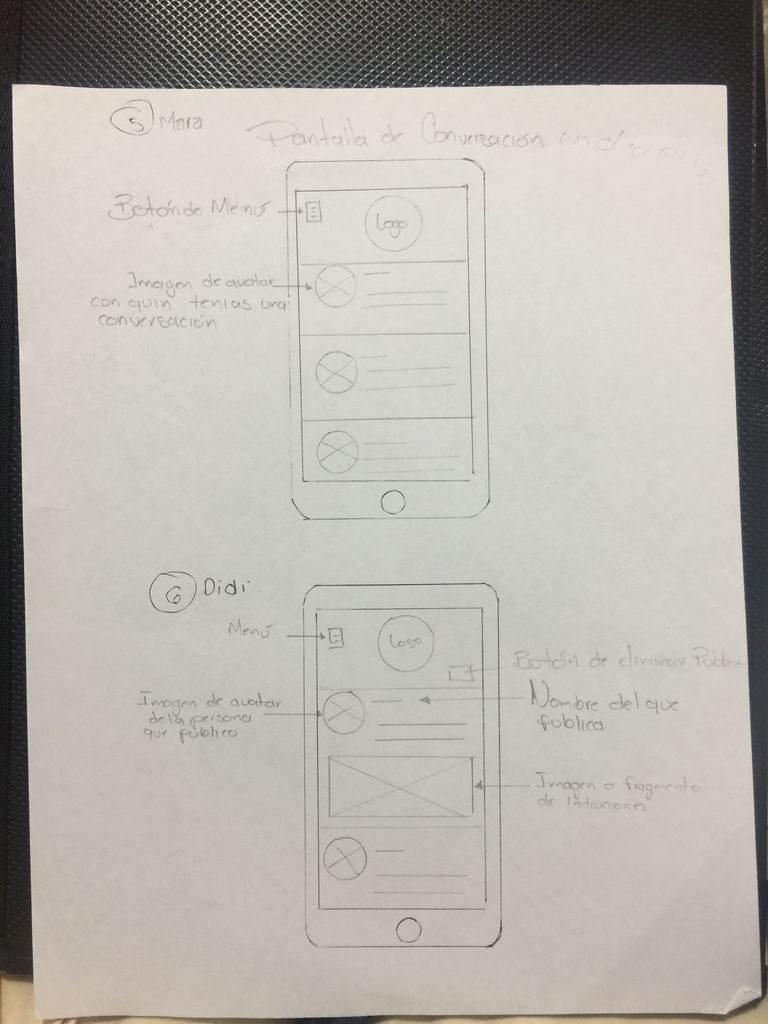 5 Mara
Pantalla de Conversación
Botón de Menú
Logo
Imagen de avatar
con quin tenias una
conversación
6 Didi
Menú
Logo
Botón de eliminar
Imagen de avatar
de la persona
que público
Nombre del que
publica
Imagen o fragmento
de Intruciones